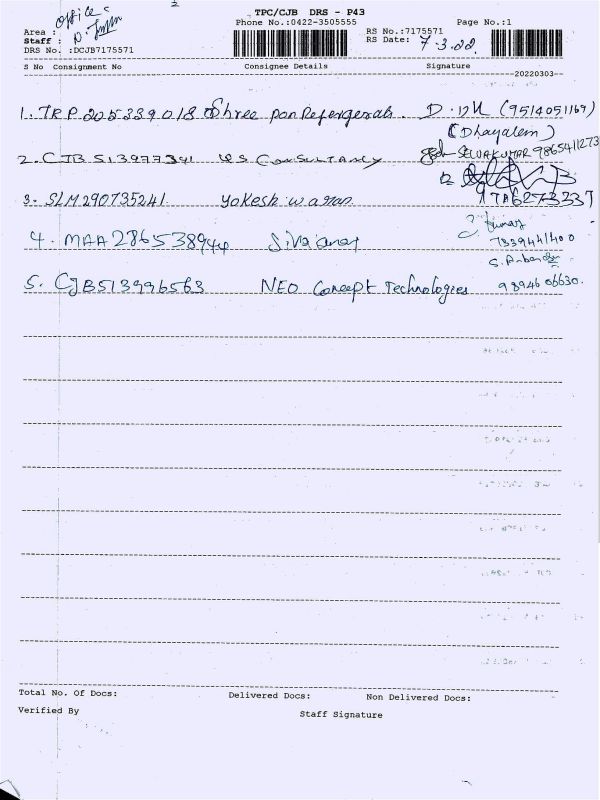 TPC/CJB DRS - P43
Office:
Area :
Phone No.:0422-3505555
Page No.:1
Staff :
RS No.:7175571
DRS No. :DCJB7175571
RS Date: 7-3-22.
S No Consignment No Consignee Details Signature
20220303
1. TRP 205339018 Shree pon Refergerals. (9514051169)
(Dhayalem)
2. CJB 513977341 Consultancy SELVAKUMAR 9865411273
3. SLM290735241 Yokeshwaran
4. MAA 286538944 Sivajanas kumar
7339441400
5. CJB513996563 NEO Concept Technologies 98946 06630.
Total No. Of Docs: Delivered Docs: Non Delivered Docs:
Verified By Staff Signature